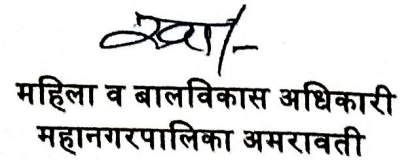 स्वा/-
महिला व बालविकास अधिकारी
महानगरपालिका अमरावती